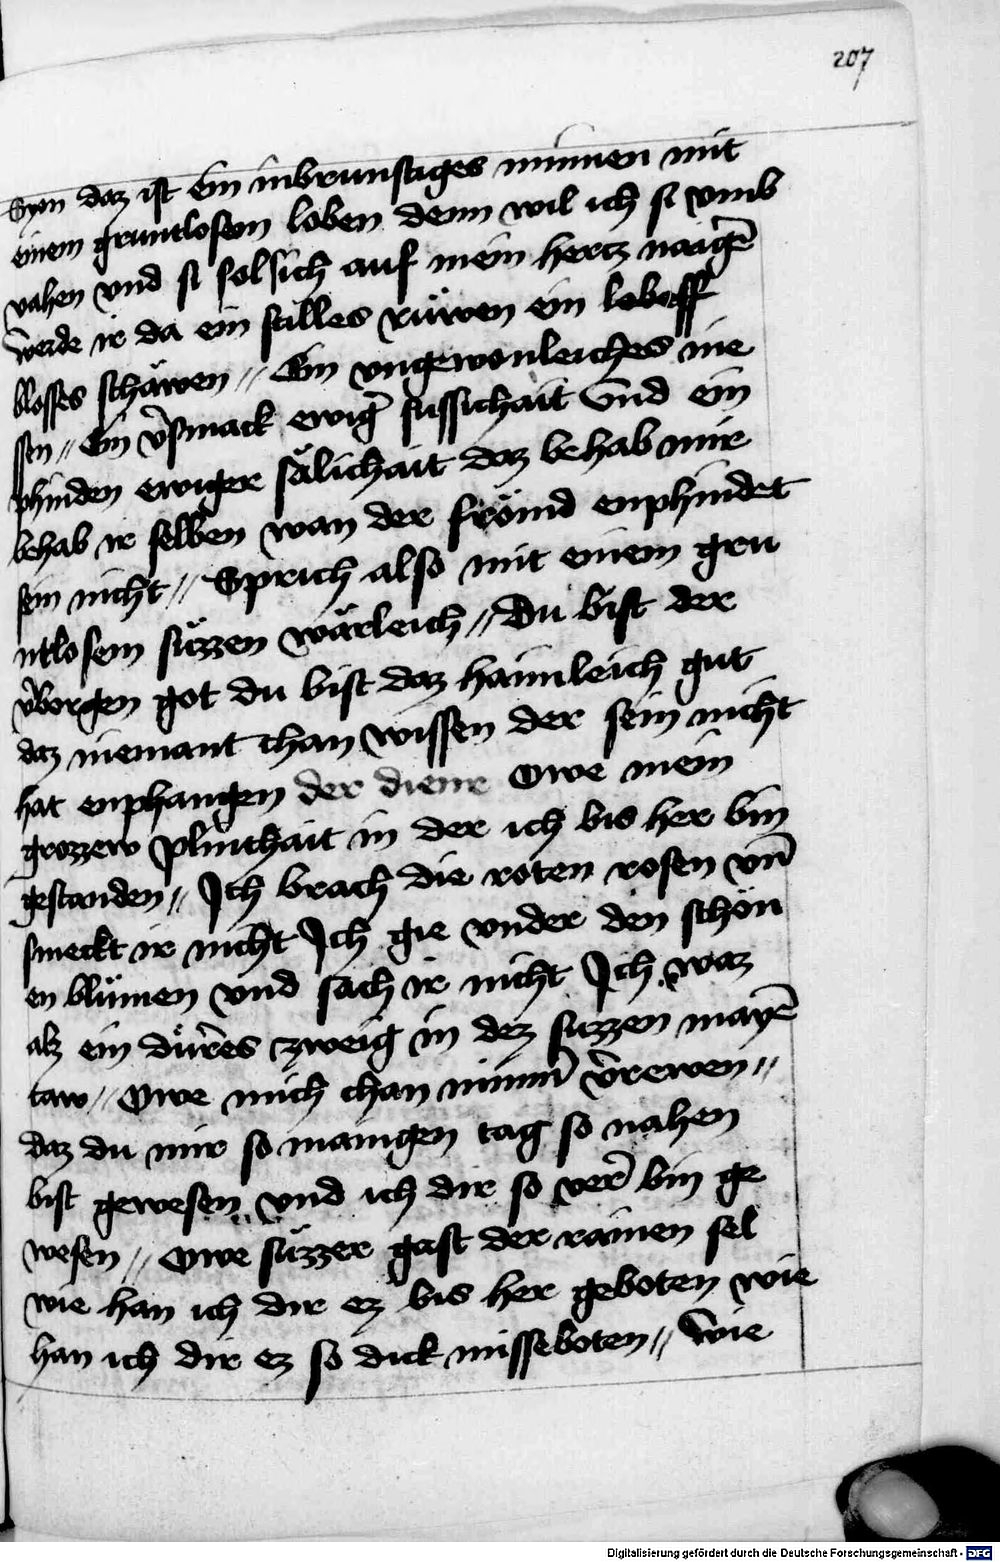 207
Syon daz ist Ein inbrunstiges minnen mit
einem gruntlosem loben denn wil ich si vmb
vahen vnd si sol sich auf mein hertz naigē
werde ir da ein stilles rüwen ein
blosses schäwen // Ein vngewonleiches nie
ssen // Ein v̄smack ewiḡ sussichait Vnd ein
phinden ewiger sälichait daz behab mir
behab ir selben wan der frömd enphindet
sein nicht // Sprich also mit einem gru
ntlosem süzzen wärleich // Du bist der
v̄borgen got du bist daz haimleich gut
daz niemant chan wissen der sein nicht
hat enphangen der diene Owe mein
grozzew plinthait in der ich bis her bin
gestanden // Ich brach die roten rosen vn̄
smeckt ir nicht Ich gie vnder den schön
en blümen vnd sach ir nicht Ich waz
alz ein dürres zweig in dez suzzen mayē
taw // Owe mich chan nimm̄ v̄rewen //
daz du mir so manigen tag so nahen
bist gewesen vnd ich dir so ver̄ bin ge
wesen // Owe süzzer gast der rainen sel
wie han ich dir ez bis her geboten wie
han ich dir ez so dick misseboten // Wie
Digitalisierung gefördert durch die Deutsche Forschungsgemeinschaft - DFG